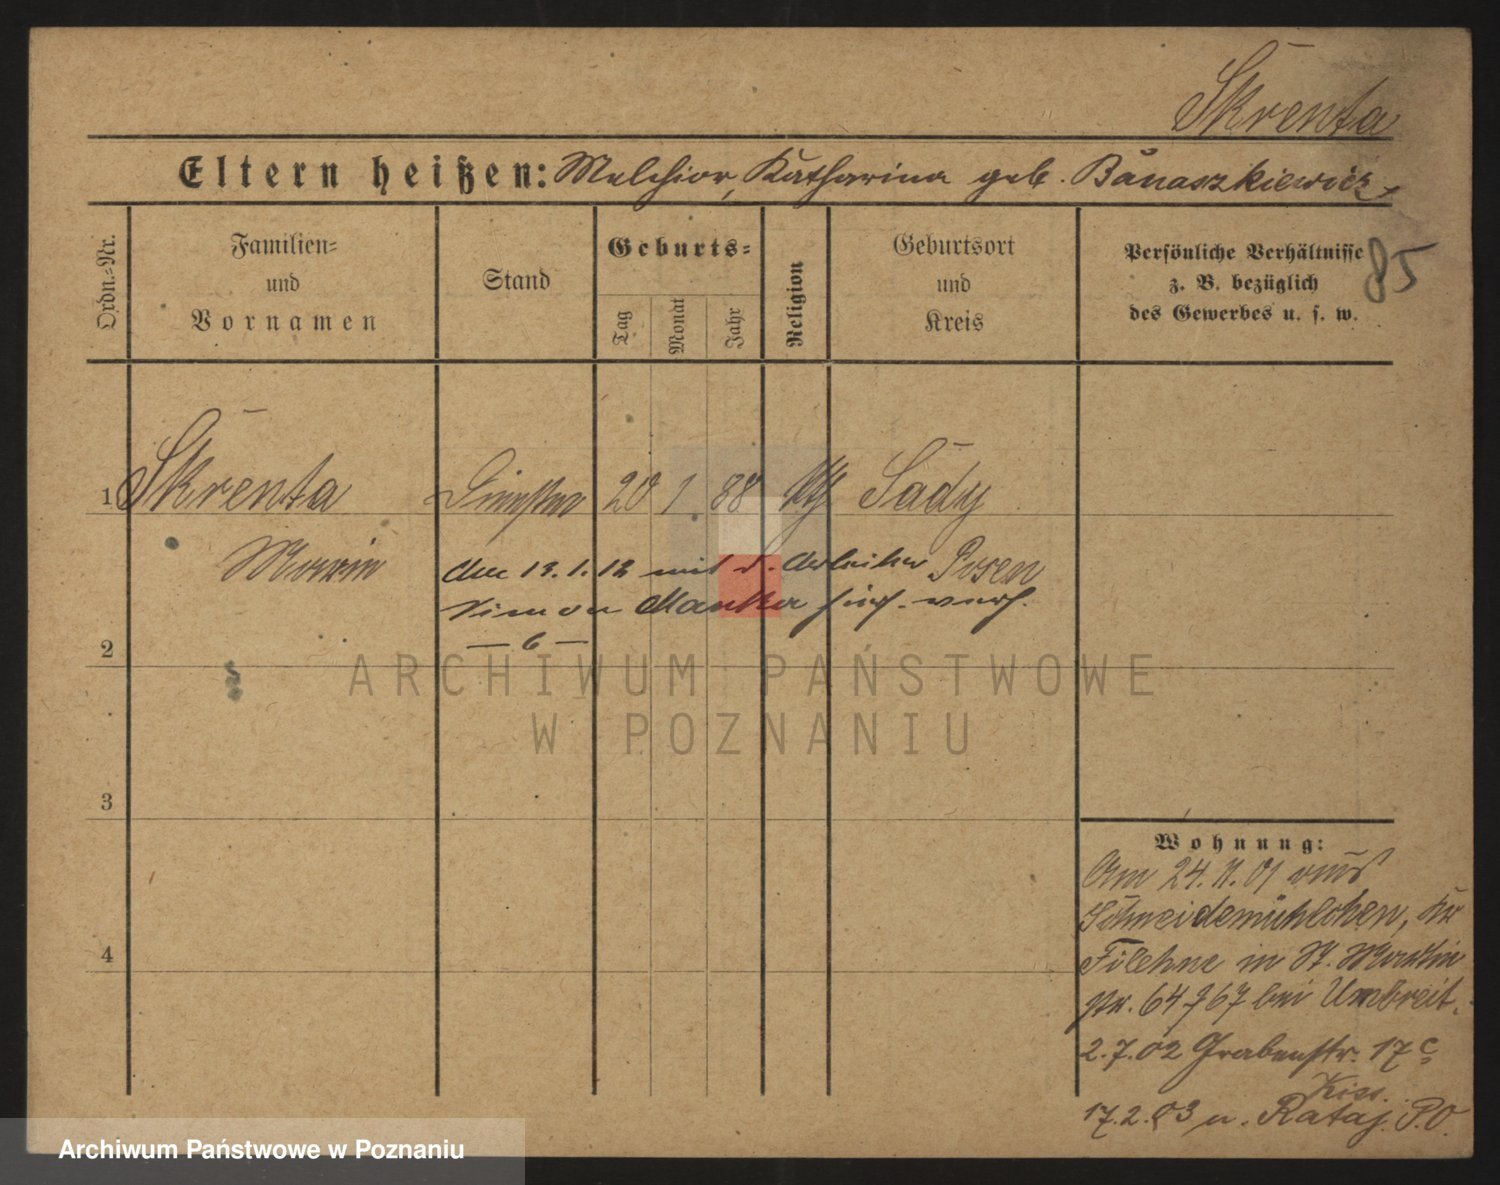 Skrenta
Eltern heißen: Melchior, Katharina geb. Banaszkiewicz
Ordn.=Nr.
Familien=
und
Vornamen
Stand
Geburts=
Tag
Monat
Jahr
Religion
Geburtsort
und
Kreis
Persönliche Verhältnisse
z. B. bezüglich
des Gewerbes u. s. w.
85
1 Skrenta 20 1 88 kth Sady
Posen
13.1.12 mit d. Arbeiter
Simon Manka hies. verh.
— 6 —
2
3
4
Wohnung:
Am 24.11.01 aus
Schneidemühlchen, Kr
Filehne in St. Martin
str. 64/67 bei Umbreit.
2.7.02 Grabenstr. 17c
17.2.03 n. Rataj. P.O.
ARCHIWUM PAŃSTWOWE
W POZNANIU
Archiwum Państwowe w Poznaniu